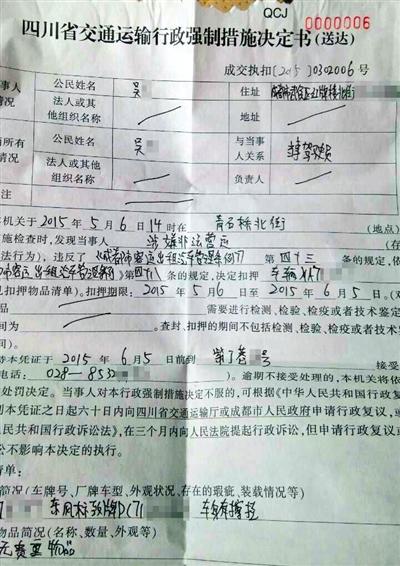 QCJ
0000006
四川省交通运输行政强制措施决定书(送达)
成交执扣〔2015〕0302006号
事人 公民姓名 吴 住址
情况 法人或其他组织名称 地址
所有 公民姓名 吴 与当事人关系
情况 法人或其他组织名称 负责人
注
本机关于2015年5月6日14时在 青石桥北街 (地点)
施检查时,发现当事人 涉嫌非法营运 (存
法行为),违反了《成都市客运出租汽车管理条例》第四十三条的规定,依
市客运出租汽车管理条例》第四十八条的规定,决定扣押 车辆川A7
扣押物品清单)。扣押期限:2015年5月6日至2015年6月5日。(对
品 需要进行检测、检验、检疫或者技术鉴定
间为 。查封、扣押的期间不包括检测、检验、检疫或者技术鉴定
持本凭证于2015年6月5日前到 紫丁巷 号 接受
电话:028-8532 )。逾期不接受处理的,本机关将依
处罚决定。当事人对本行政强制措施决定不服的,可根据《中华人民共和国行政复
到本凭证之日起六十日内向四川省交通运输厅或成都市人民政府申请行政复议,或
民共和国行政诉讼法》,在三个月内向人民法院提起行政诉讼,但申请行政复议或
讼不影响本决定的执行。
清单:
简况(车牌号、厂牌车型、外观状况、存在的瑕疵、装载情况等)
东风标致牌DC71 车身有擦挂
物品简况(名称、数量、外观等)
无贵重物品